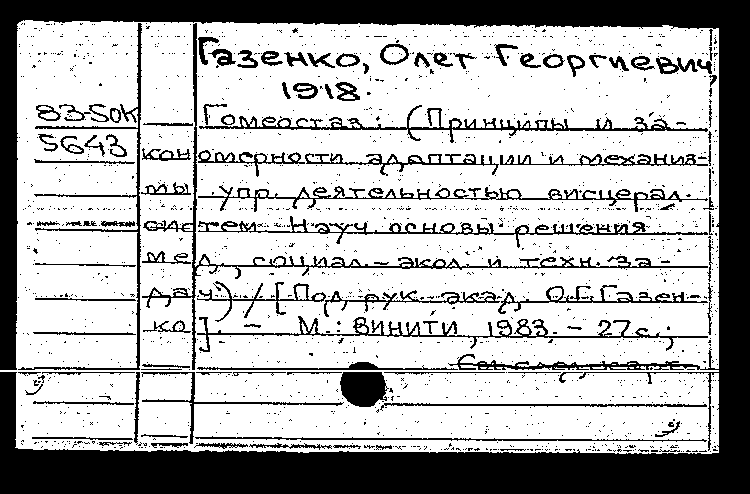 Газенко, Олег Георгиевич,
1918.
83-50К Гомеостаз: (Принципы и за-
5643 кономерности адаптации и механиз-
мы упр. деятельностью висцерал.
систем. Науч. основы решения
мед., социал.-экол. и техн. за-
дач) / [Под рук. акад. О.Г.Газен-
ко]. - М.: ВИНИТИ, 1983. - 27с.;
См. след. карт.